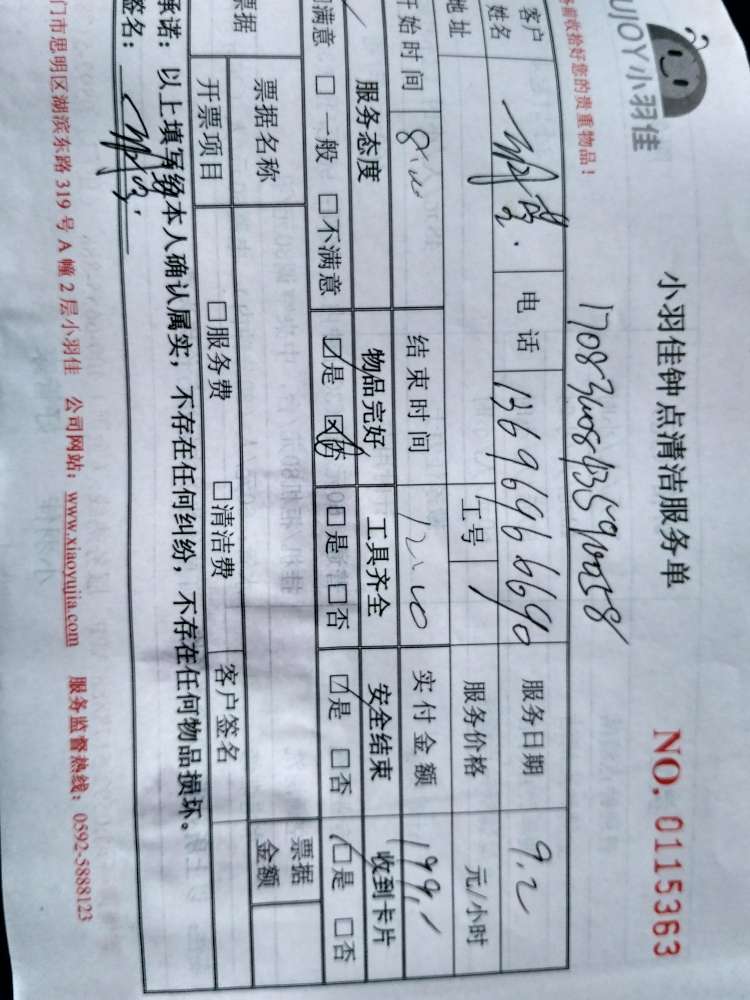 UJOY小羽佳
小羽佳钟点清洁服务单
NO. 0115363
务前收拾好您的贵重物品！
客户姓名 电话 13696966690 服务日期 9.2
地址 工号 服务价格 元/小时
开始时间 结束时间 实付金额 199
服务态度 物品完好 工具齐全 安全结束 收到卡片
满意 □一般 □不满意 ☑是 ☒否 □是 □否 ☑是 □否 ☑是 □否
票据 票据名称 票据金额
开票项目 □服务费 □清洁费 客户签名
承诺：以上填写经本人确认属实，不存在任何纠纷，不存在任何物品损坏。
签名：
门市思明区湖滨东路 319 号 A 幢 2 层小羽佳 公司网站：www.xiaoyujia.com 服务监督热线：0592-5888123